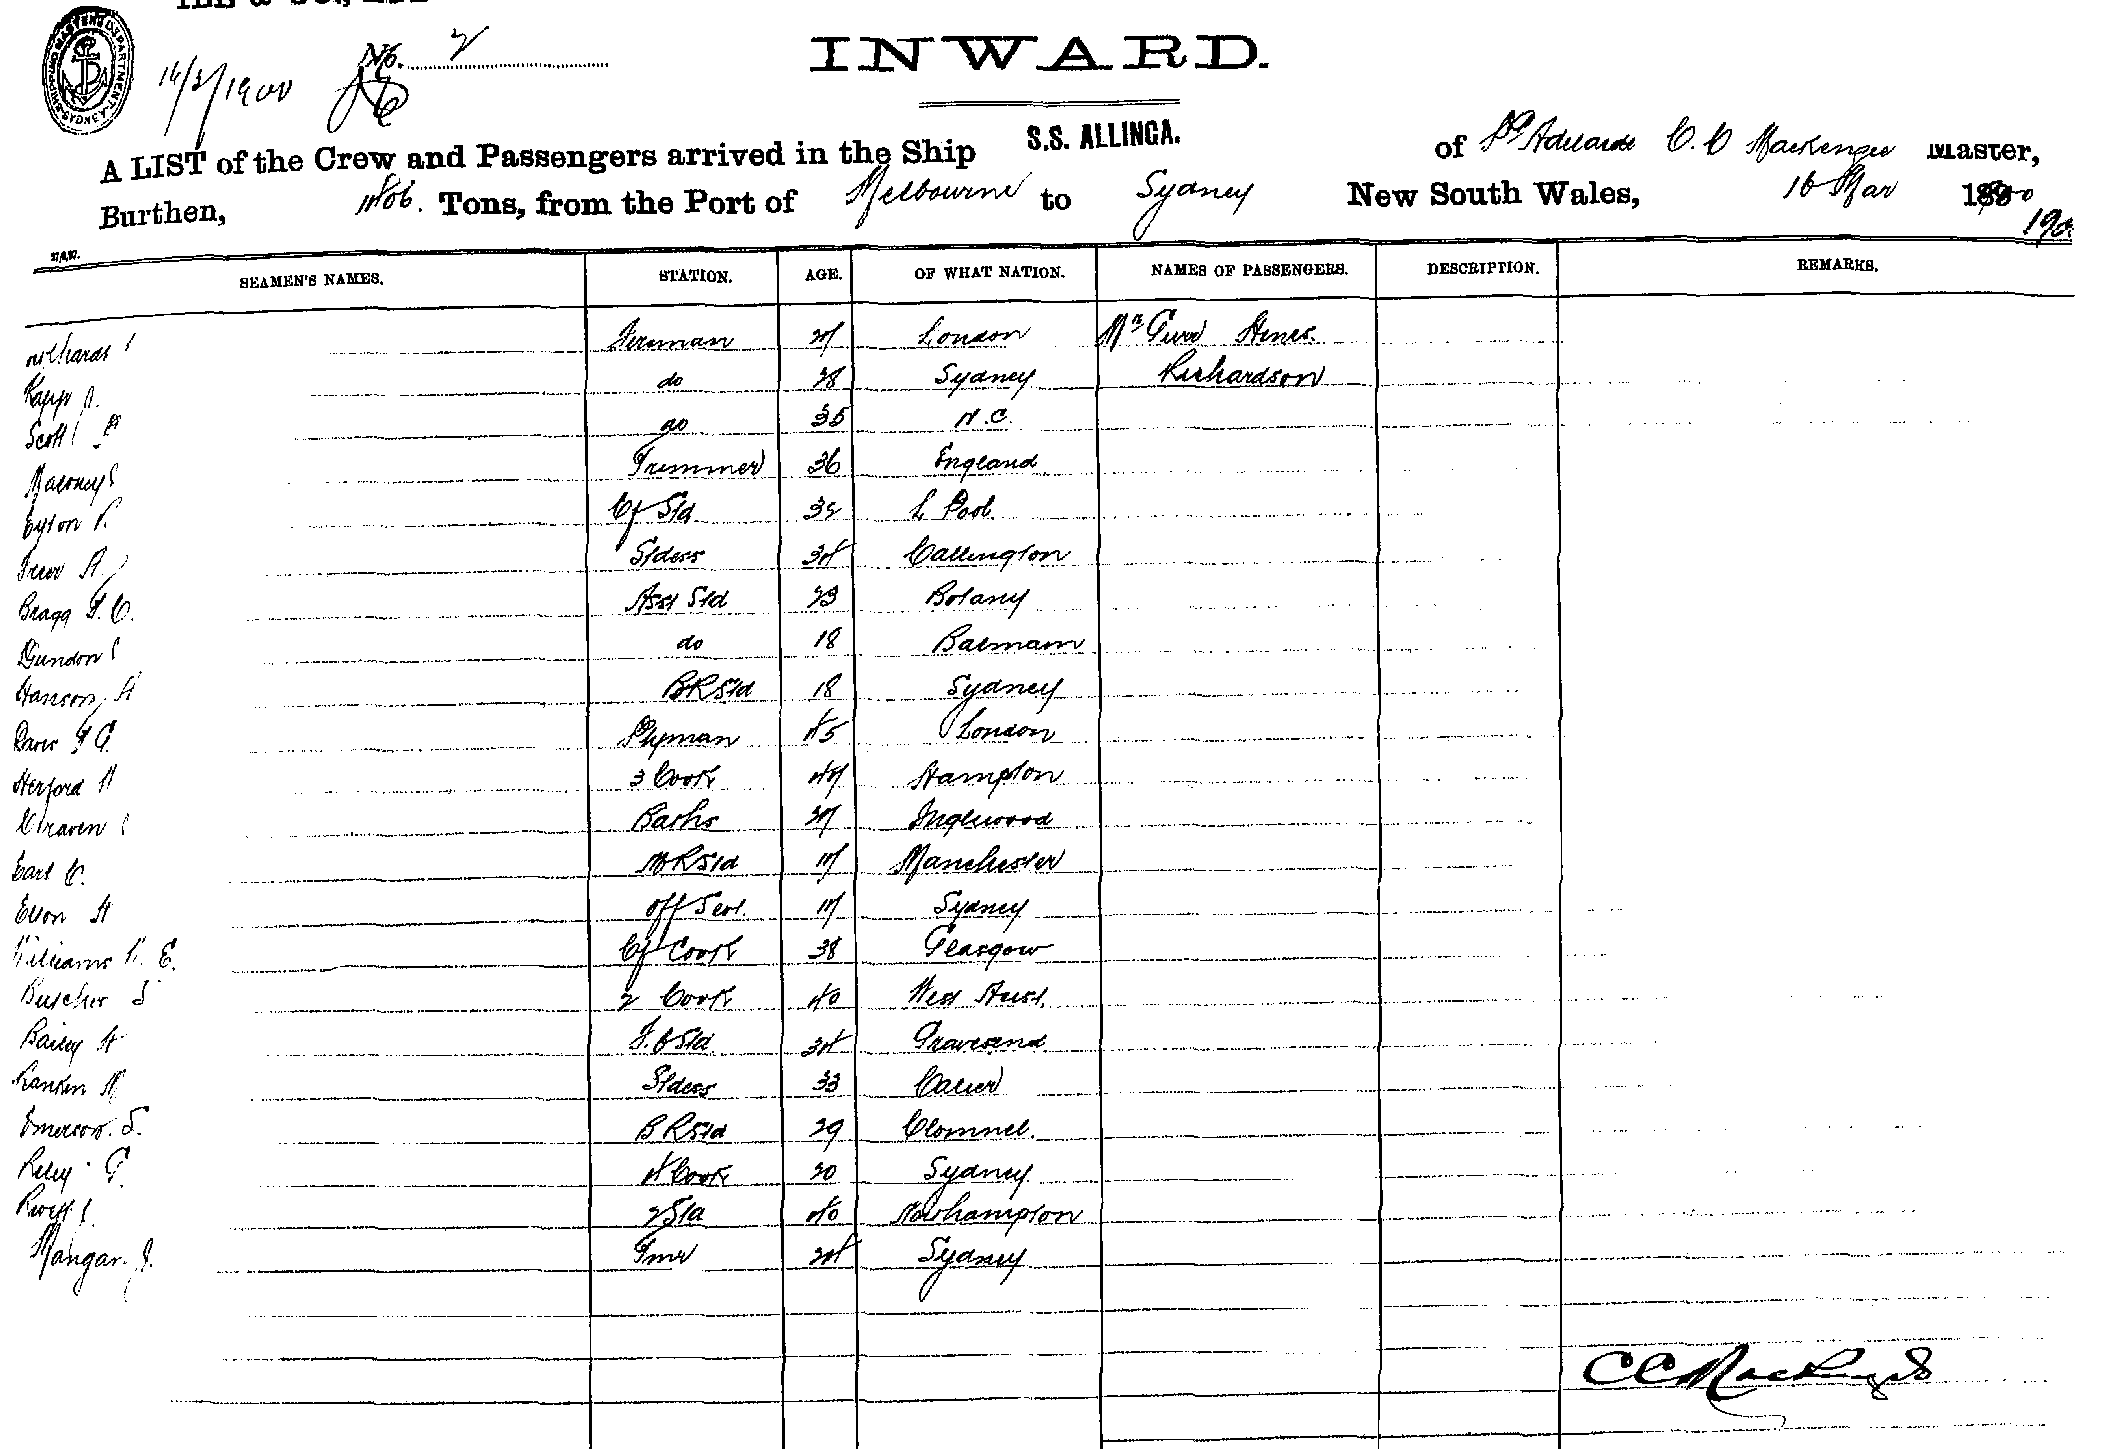 No. 2
INWARD.
16/3/1900
SHIPPING MASTERS DEPARTMENT SYDNEY
A LIST of the Crew and Passengers arrived in the Ship S.S. ALLINGA. of Pt Adelaide C. C Mackenzie Master,
Burthen, Tons, from the Port of Melbourne to Sydney New South Wales, 16 Mar 1900
190
SEAMEN'S NAMES. STATION. AGE. OF WHAT NATION. NAMES OF PASSENGERS. DESCRIPTION. REMARKS.
Fireman 27 London Mrs Hines.
Kapp do 28 Sydney Richardson
Scott do 35 N.C.
Maloney Trimmer 36 England
Eyton Cf Std 32 L Pool.
H Stdess 34 Callington
Bragg F. C. Asst Std 23 Botany
Dundon do 18 Balmain
Hanson H BR Std 18 Sydney
Davis F G. Pyman 45 London
Herford W 3 Cook 47 Hampton
Craven Baths 37 Inglewood
Earl C. MR Std 17 Manchester
Elson H off Sevt. 17 Sydney
Williams W. E. Cf Cook 38 Glasgow
Buscher S 2 Cook 40 West Aust.
Bailey H F.C Std 34 Gravesend
Rankin M Stdess 33 Calier
Emerson. S. B R Std 29 Clonmel.
Riley G. 4 Cook 20 Sydney
2 Std 40 Norhampton
Mangan J. Tmr 24 Sydney
C C Mackenzie